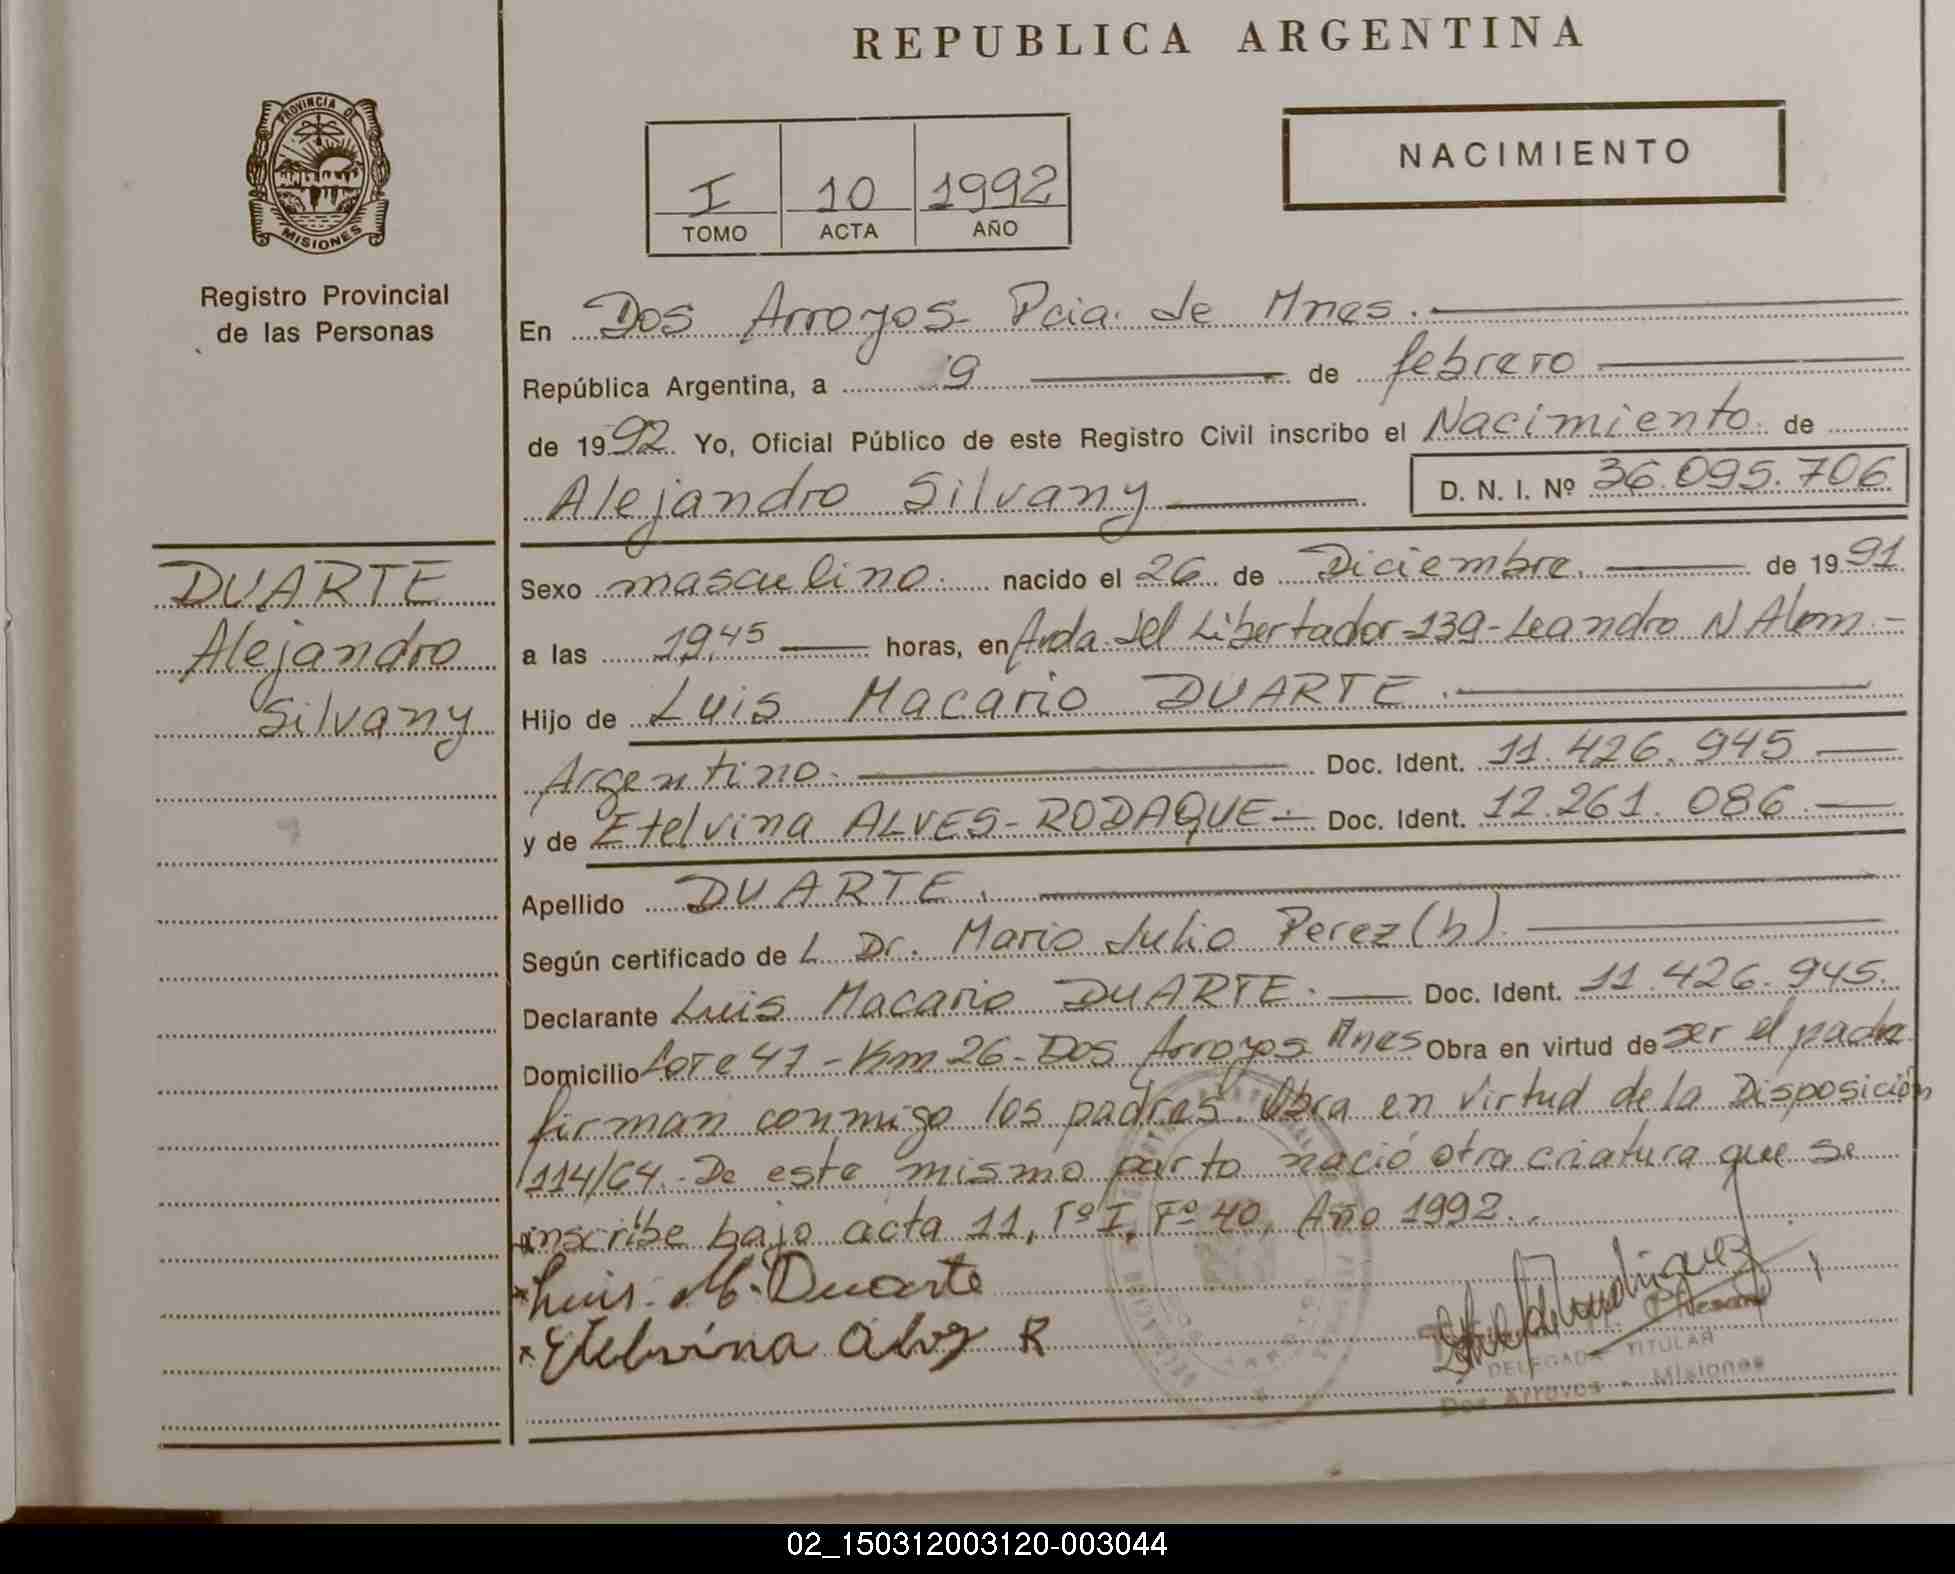 REPUBLICA ARGENTINA
PROVINCIA DE
MISIONES
Registro Provincial
de las Personas
I 10 1992
TOMO ACTA AÑO
NACIMIENTO
En Dos Arroyos Pcia. de Mnes.
República Argentina, a 9 de febrero
de 1992. Yo, Oficial Público de este Registro Civil inscribo el Nacimiento de
Alejandro Silvany D. N. I. Nº 36.095.706
DUARTE
Alejandro
Silvany
Sexo masculino. nacido el 26 de Diciembre. de 1991
a las 19,45 horas, en Avda. del Libertador-139-Leandro N Alem.-
Hijo de Luis Macario DUARTE.
Argentino. Doc. Ident. 11.426.945
y de Etelvina ALVES-RODAQUE.- Doc. Ident. 12.261.086.
Apellido DUARTE.
Según certificado de L Dr. Mario Julio Perez (h).
Declarante Luis Macario DUARTE. Doc. Ident. 11.426.945.
Domicilio Lote 47-Km 26-Dos Arroyos Mnes Obra en virtud de ser el padre
firman conmigo los padres. Obra en virtud de la Disposición
114/64.- De este mismo parto nació otra criatura que se
inscribe bajo acta 11, Tº I, Fº 40, Año 1992.
Luis. M. Duarte
Etelvina Alvez R
DELEGADA TITULAR
Dos Arroyos - Misiones
02_150312003120-003044